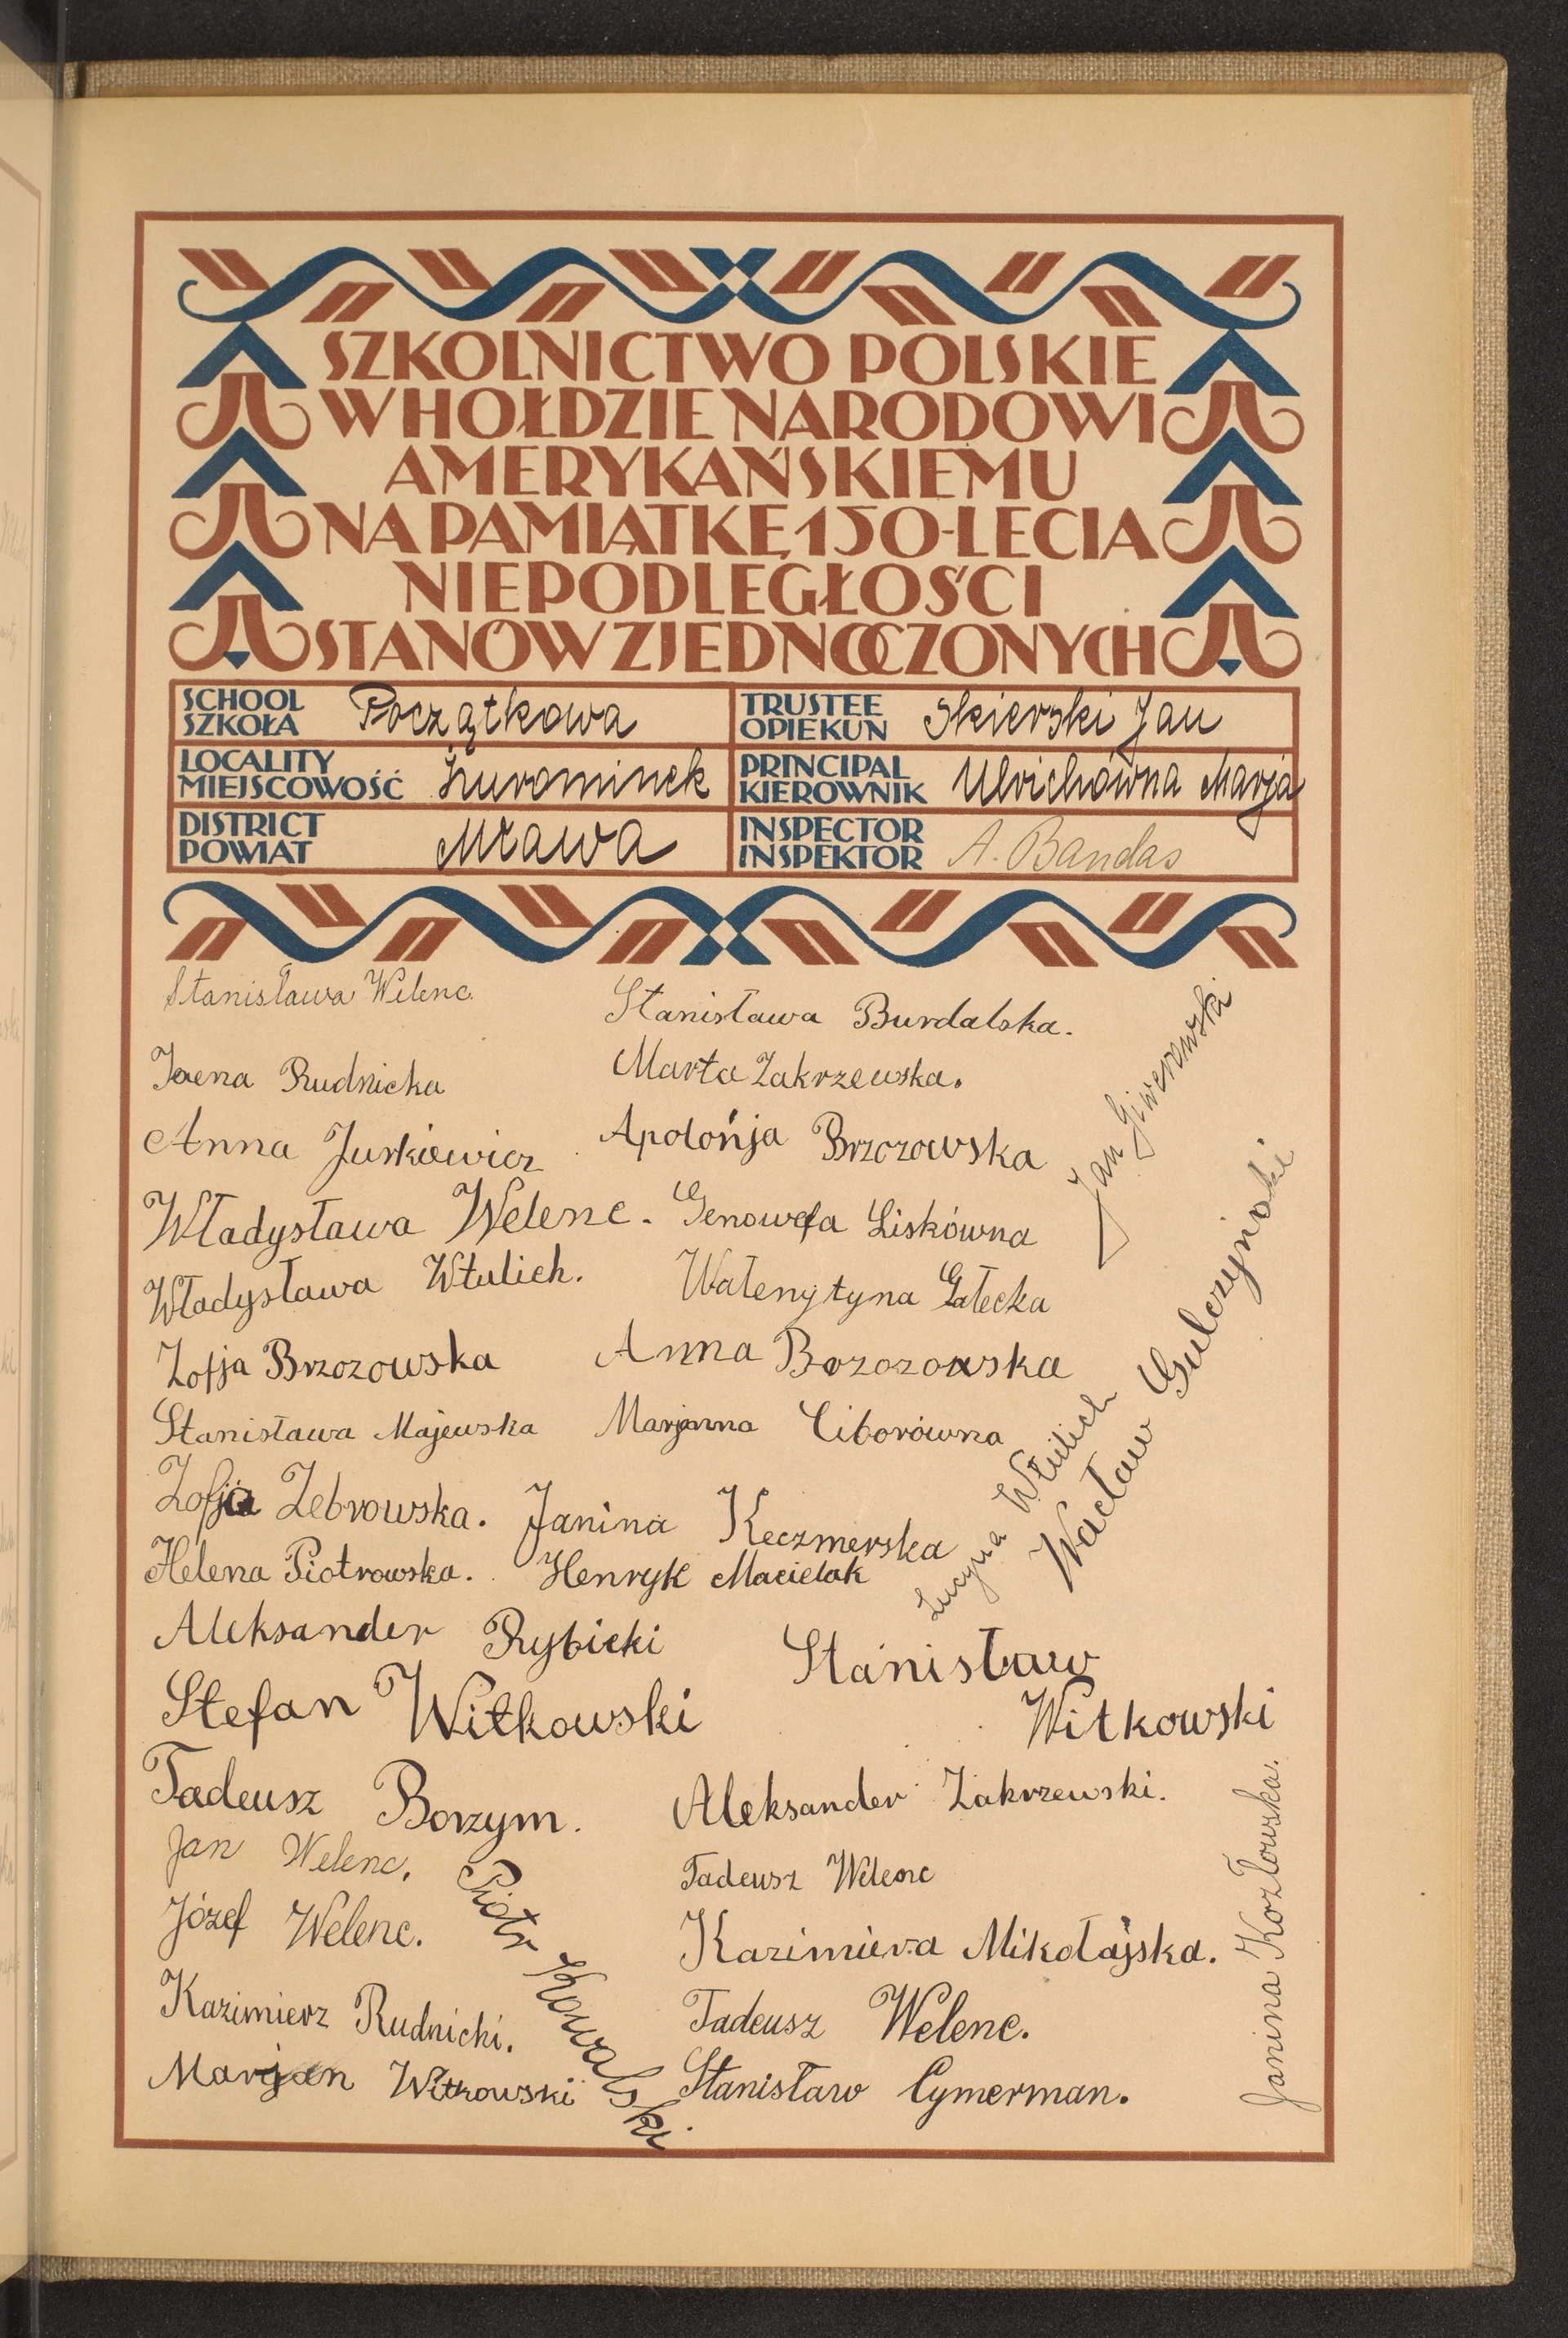 SZKOLNICTWO POLSKIE
W HOŁDZIE NARODOWI
AMERYKAŃSKIEMU
NA PAMIĄTKĘ 150-LECIA
NIEPODLEGŁOŚCI
STANÓW ZJEDNOCZONYCH
SCHOOL SZKOŁA Początkowa
TRUSTEE OPIEKUN Skierski Jan
LOCALITY MIEJSCOWOŚĆ Żurominek
PRINCIPAL KIEROWNIK Ulrichówna Marja
DISTRICT POWIAT Mława
INSPECTOR INSPEKTOR A. Bandas
Stanisława Welenc.
Stanisława Burdalska.
Rudnicka
Marta Zakrzewska.
Anna Jurkiewicz
Apolońja Brzozowska
Jan
Władysława Welenc.
Genowefa Liskówna
Władysława Wtulich.
Walenytyna Gałecka
Zofja Brzozowska
Anna Bozozowska
Wacław Gulczyński
Stanisława Majewska
Marjanna Ciborówna
Lucyna Wtulich
Zofja Żebrowska.
Janina Keczmerska
Helena Piotrowska.
Henryk Macielak
Aleksander Rybicki
Stanisław
Witkowski
Stefan Witkowski
Tadeusz Borzym.
Aleksander Zakrzewski.
Jan Welenc.
Tadeusz Welenc
Piotr Kowalski
Józef Welenc.
Kazimiera Mikołajska.
Janina Kozłowska.
Kazimierz Rudnicki.
Tadeusz Welenc.
Marjan Witkowski
Stanisław Cymerman.